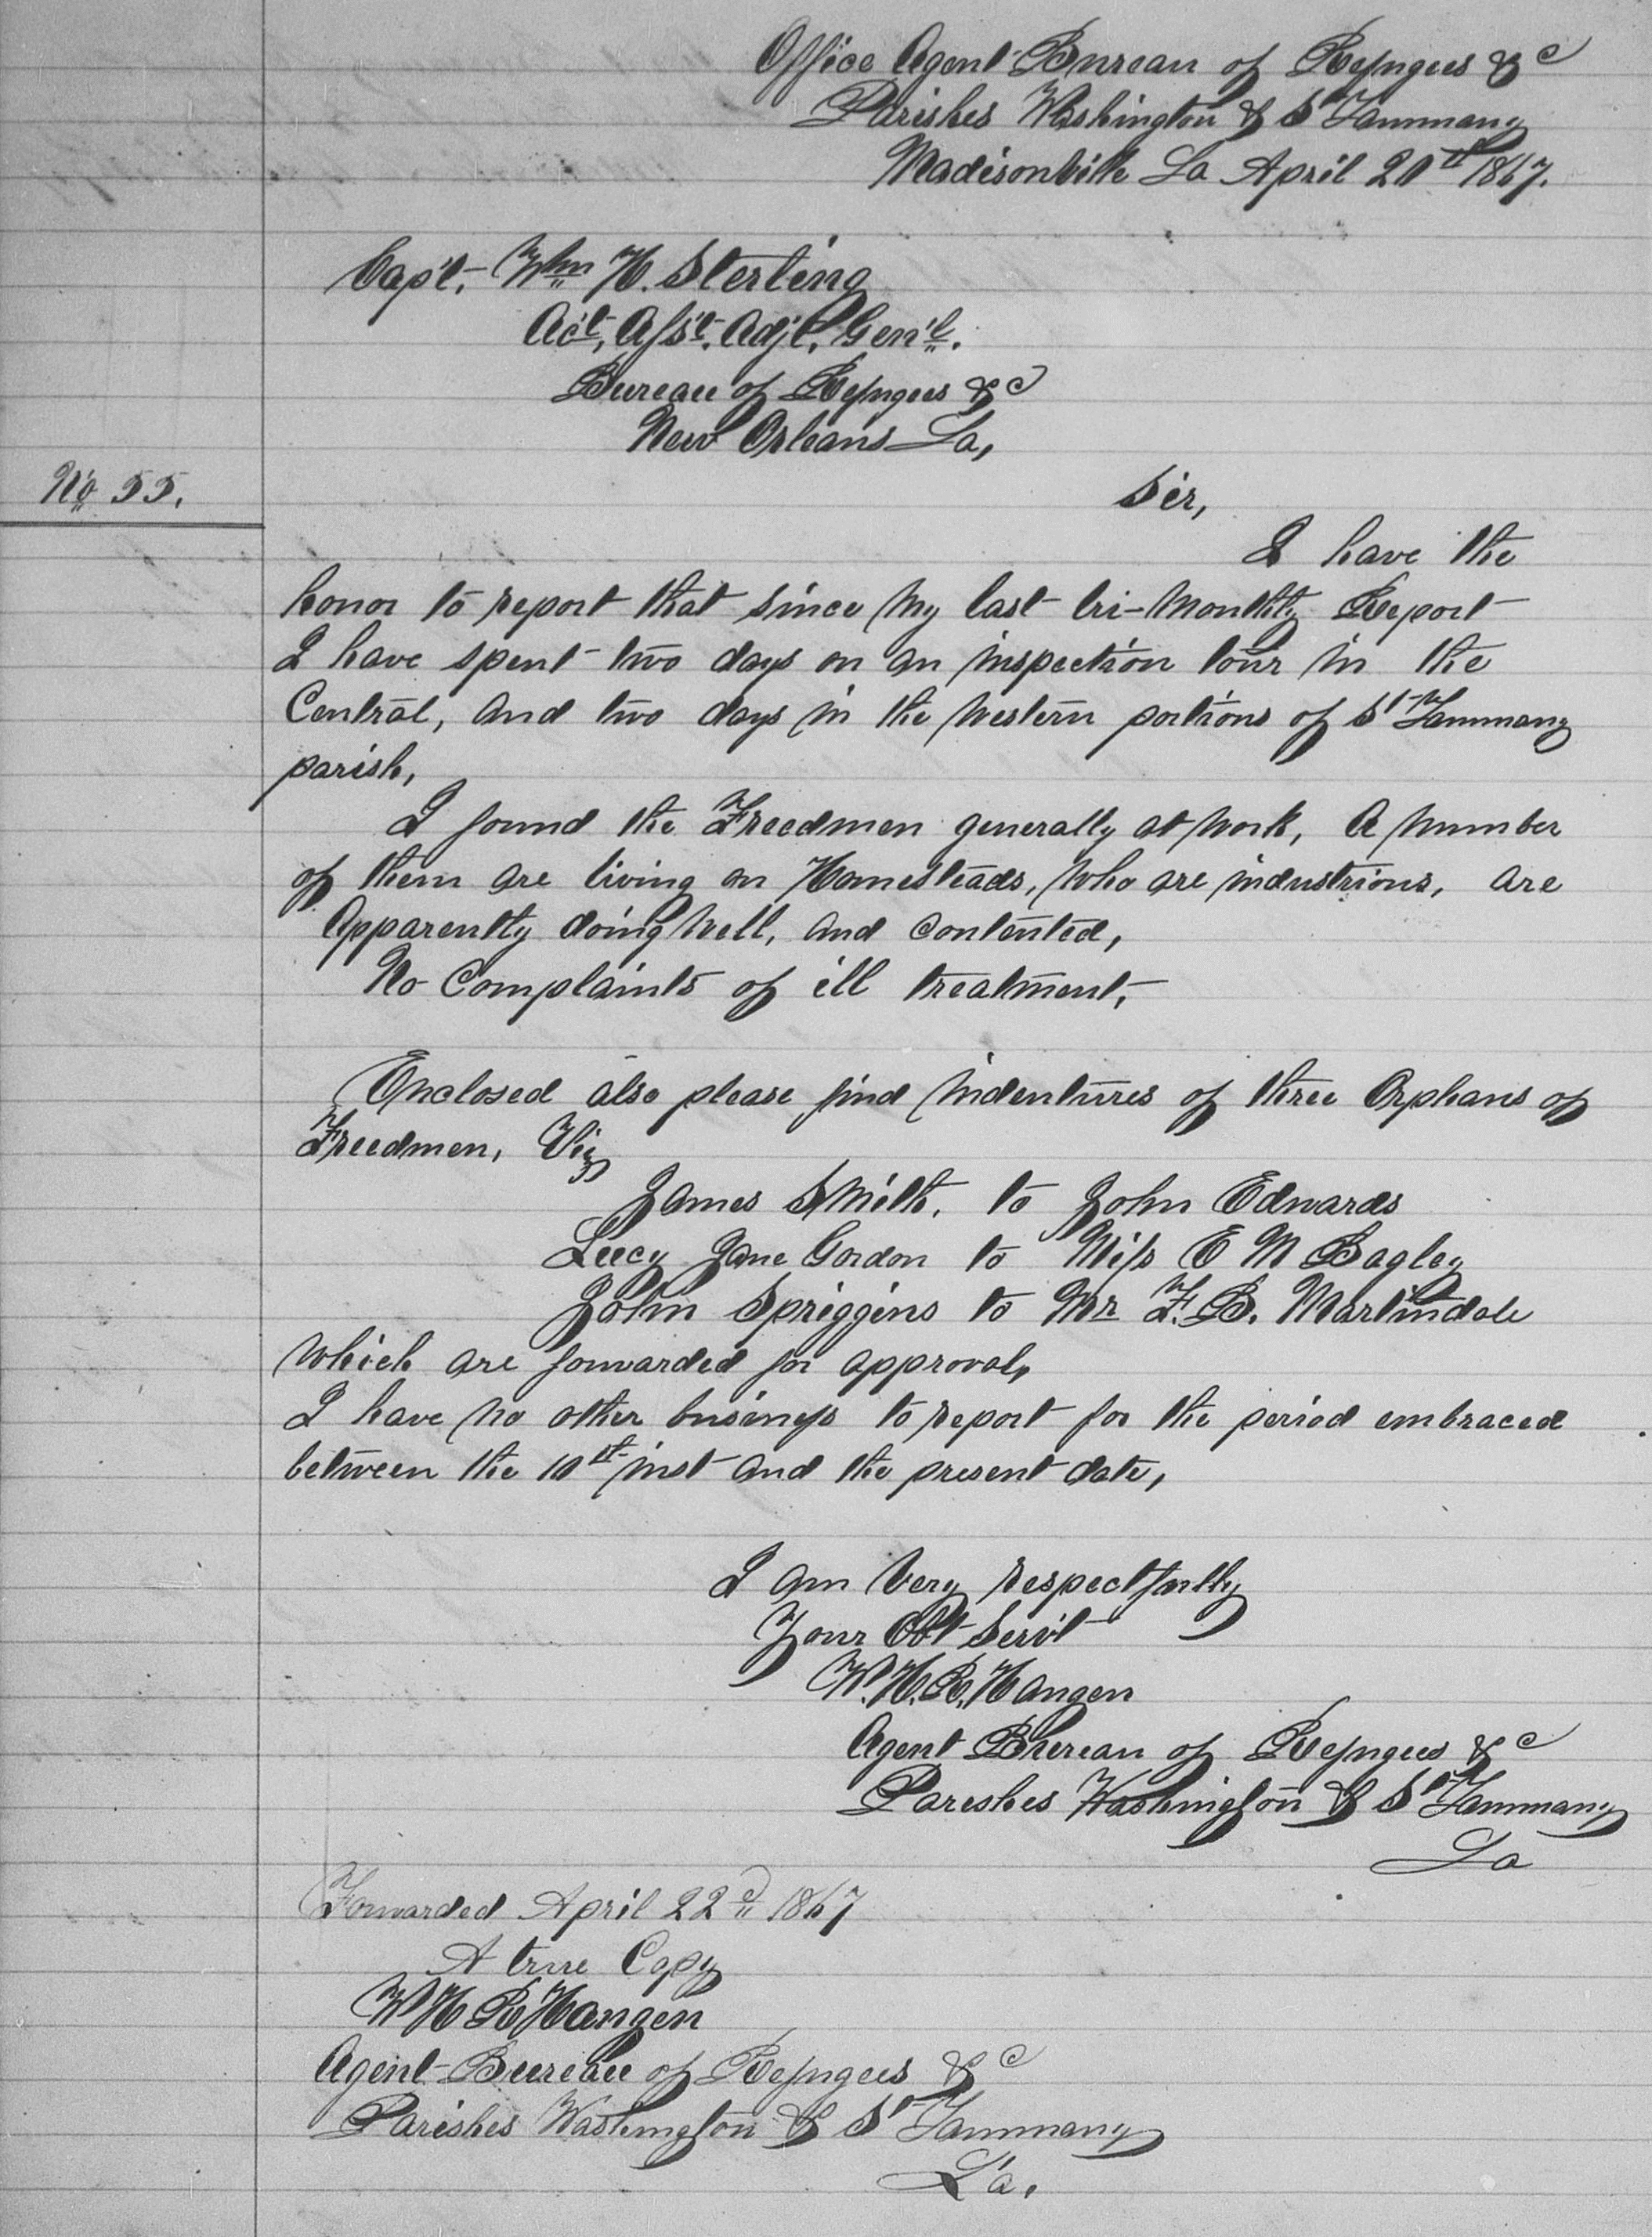 Office Agent Bureau of Refugees &c
Parishes Washington & St Tammany
Madisonville La April 20th 1867.
Capt. Wm H. Sterling
Act, Asst. Adjt. Gen'l.
Bureau of Refugees &c
New Orleans La,
No 55.
Sir,
I have the
honor to report that since my last tri-monthly Report
I have spent two days on an inspection tour in the
Central, and two days in the western portions of St Tammany
parish,
I found the Freedmen generally at work, A number
of them are living on Homesteads, who are industrious, are
apparently doing well, and contented,
No Complaints of ill treatment,
Enclosed also please find indentures of three Orphans of
Freedmen, Viz
James Smith, to John Edwards
Lucy Jane Gordon to Miss E M Bagley
John Spriggins to Mr F. B. Martindale
which are forwarded for approval,
I have no other business to report for the period embraced
between the 10th inst and the present date,
I am Very respectfully
Your Obt Servt
W. H. R. Hangen
Agent Bureau of Refugees &c
Parishes Washington & St Tammany
La
Forwarded April 22d 1867
A true Copy
W H R Hangen
Agent Bureau of Refugees &c
Parishes Washington & St Tammany
La.